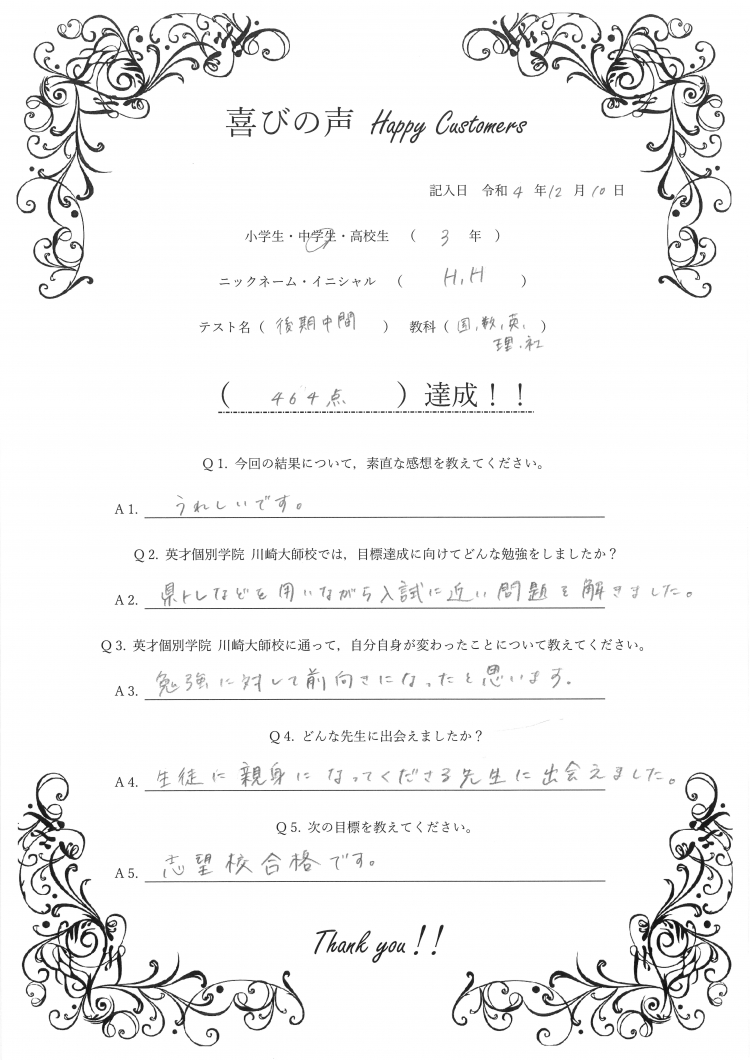 喜びの声 Happy Customers
記入日 令和4年12月10日
小学生・中学生・高校生 （ 3 年 ）
ニックネーム・イニシャル （ H,H ）
テスト名（ 後期中間 ） 教科（ 国,数,英,
理,社 ）
（ 464点 ）達成！！
Q1. 今回の結果について，素直な感想を教えてください。
A1. うれしいです。
Q2. 英才個別学院 川崎大師校では，目標達成に向けてどんな勉強をしましたか？
A2. 県トレなどを用いながら入試に近い問題を解きました。
Q3. 英才個別学院 川崎大師校に通って，自分自身が変わったことについて教えてください。
A3. 勉強に対して前向きになったと思います.
Q4. どんな先生に出会えましたか？
A4. 生徒に親身になってくださる先生に出会えました。
Q5. 次の目標を教えてください。
A5. 志望校合格です。
Thank you!!